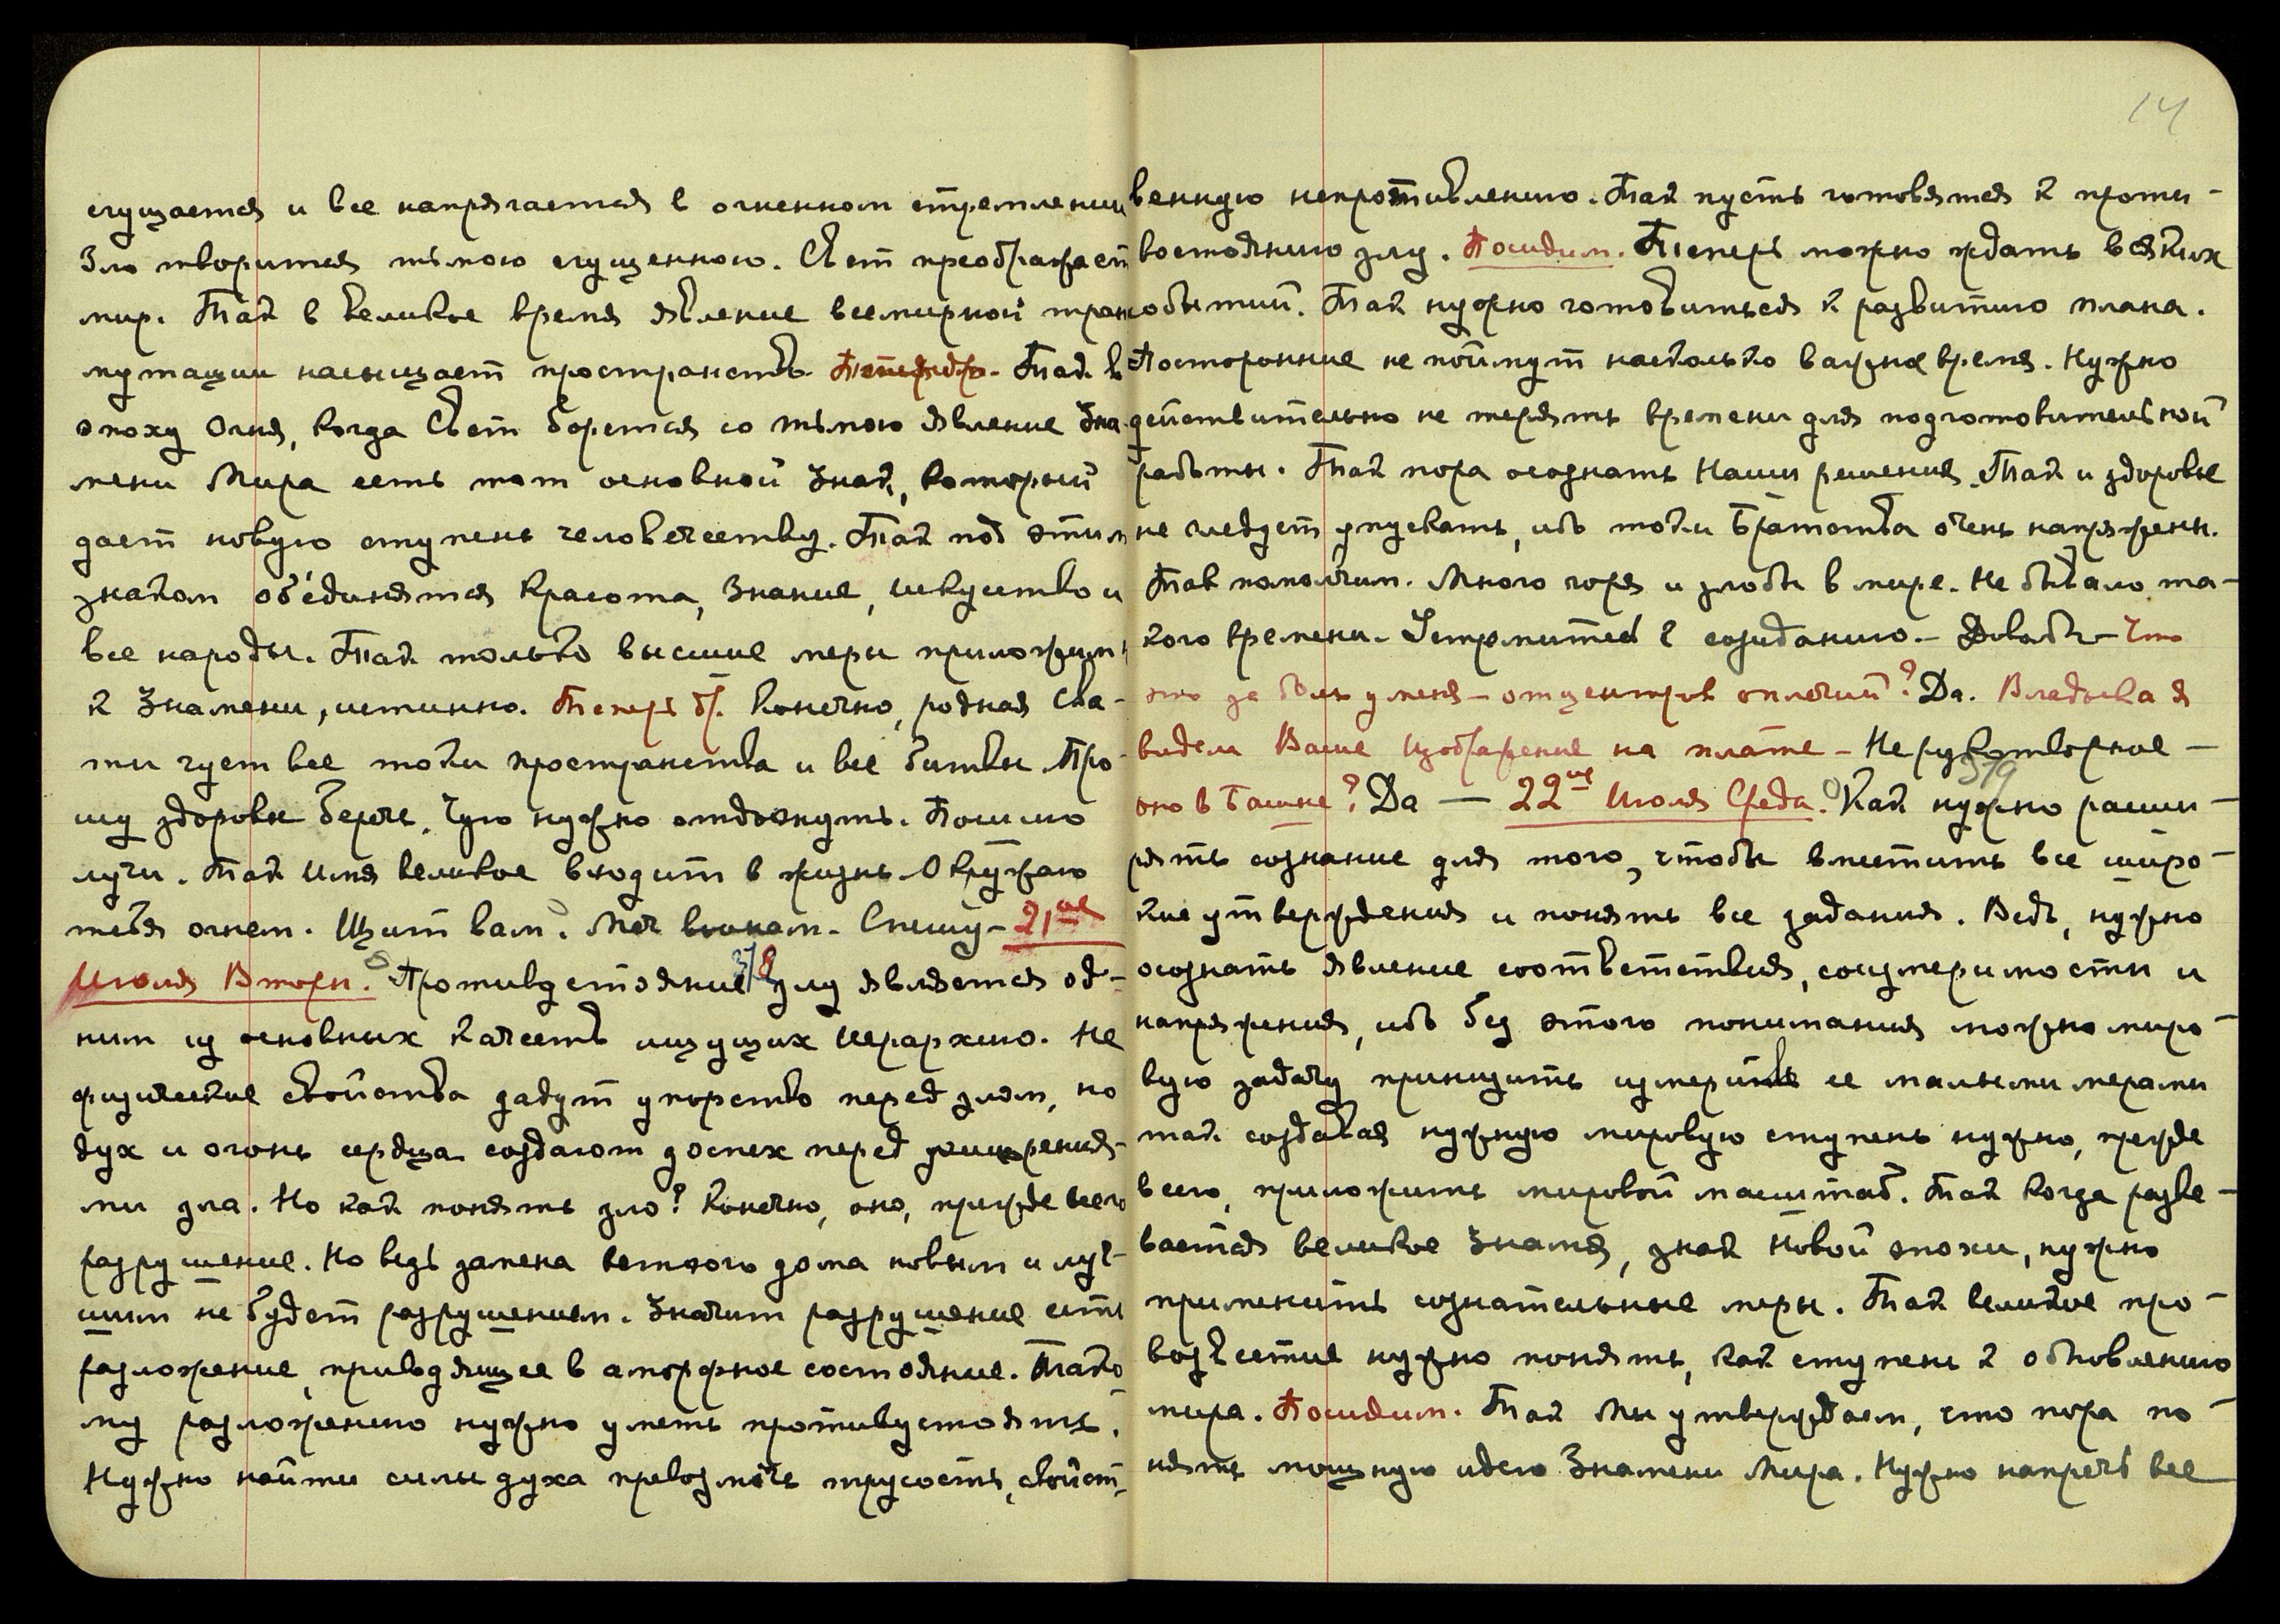 сгущается и все напрягается в огненном стремлении
Зло творится тьмою сгущенною. Свет преображает
мир. Так в великое время явление всемирной транс
мутации насыщает пространство. Так в
эпоху Огня, когда Свет борется со тьмою явление Зна-
мени Мира есть тот основной Знак, который
дает новую ступень человечеству. Так под этим
знаком об'единятся Красота, Знание, искусство и
все народы. Так только высшие меры приложимы
к Знамени, истинно. Теперь др. Конечно, родная Сва-
ти чует все токи пространства и все битвы. Про-
шу здоровье беречь. Чую нужно отдохнуть. Посылаю
лучи. Так Имя великое входит в жизнь. Окружаю
тебя огнем. Щит вам. Меч воинам. Спешу – 21ое
Июля Вторн. 378 Противустояние злу является од-
ним из основных качеств ищущих Иерархию. Не
физические свойства дадут упорство перед злом, но
дух и огонь сердца создают доспех перед ухищрения-
ми зла. Но как понять зло? Конечно, оно, прежде всего
разрушение. Но ведь замена ветхого дома новым и луч-
шим не будет разрушением. Значит разрушение есть
разложение, приводящее в аморфное состояние. Тако-
му разложению нужно уметь противустоять.
Нужно найти силы духа превозмочь трусость, свойст-
14
венную непротивлению. Так пусть готовятся к проти-
востоянию злу. Посидим. Теперь можно ждать всяких
событий. Так нужно готовиться к развитию плана.
Посторонние не поймут насколько важное время. Нужно
действительно не терять времени для подготовительной
работы. Так пора осознать Наши решения. Так и здоровье
не следует упускать, ибо токи Братства очень напряжены.
Так помолчим. Много горя и злобы в мире. Не бывало та-
кого времени. Устремитесь к созиданию. – Довольно – Что
это за боль у меня – от центров оплечий? Да. Владыка я
видела Ваше изображение на плате – Нерукотворное –
оно в Башне? Да — 22ое Июля Среда. 379 Как нужно расши-
рять сознание для того, чтобы вместить все широ-
кие утверждения и понять все задания. Ведь, нужно
осознать явление соответствия, соизмеримости и
напряжения, ибо без этого понимания можно миро-
вую задачу принизить измерить ее малыми мерами
так создавая нужную мировую ступень нужно, прежде
всего, приложить мировой масштаб. Так когда разве-
вается великое Знамя, знак Новой эпохи, нужно
применить сознательные меры. Так великое про-
возвестие нужно понять, как ступень к обновлению
мира. Посидим. Так Мы утверждаем, что пора по-
нять мощную идею Знамени Мира. Нужно напречь все